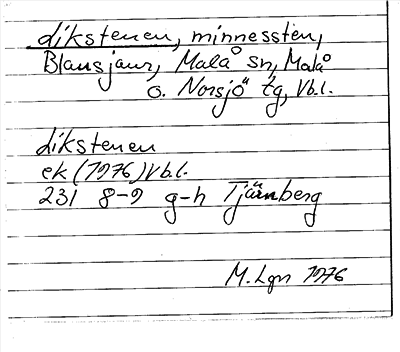 dikstenen, minnessten,
Blausjaur, Malå sn, Malå
o. Norsjö tg, Vb.l.
dikstenen
ek (1976) Vb.l.
231 8-9 g-h Tjärnberg
M. Lgn 1976